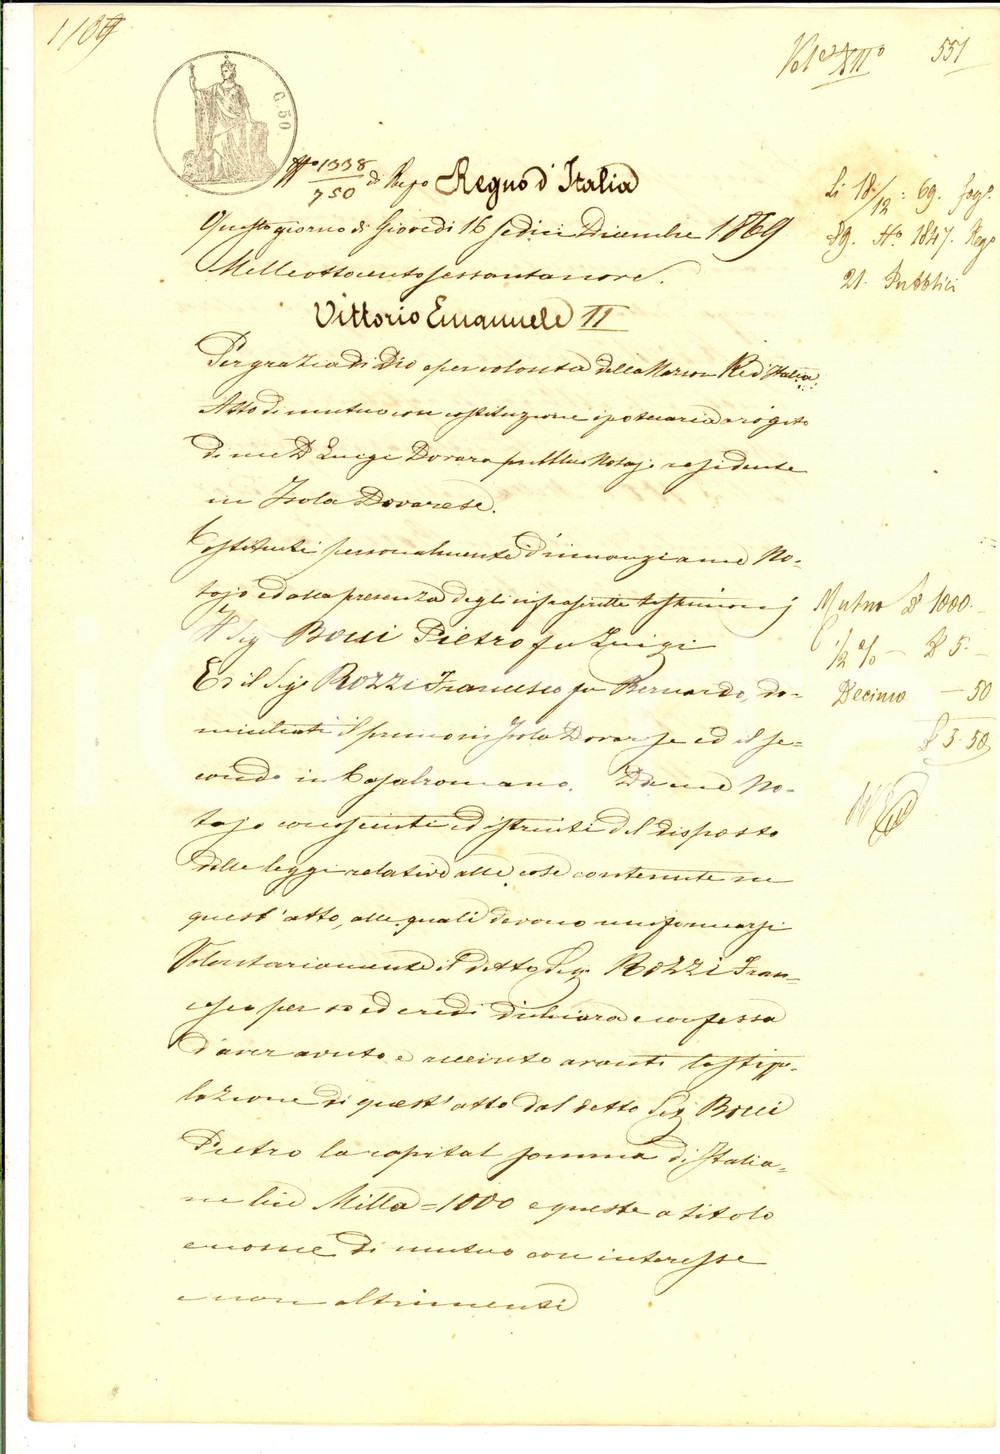 Vol.e XII° 551
C. 50
N.° 1338/750 di Rep.o Regno d'Italia
Questo giorno di Giovedì 16 sedici Dicembre 1869
Milleottocentosessantanove.
Vittorio Emanuele II
Per grazia di Dio e per volontà della Nazion Re d'Italia.
Atto di mutuo con costituzione ipotecaria a rogito
di me D. Luigi Dovara pubblico Notajo residente
in Isola Dovarese.
Costituiti personalmente d'innanzi a me No-
tajo ed alla presenza degli infrascritti testimonj
Il Sig. Bocci Pietro fu Luigi
Ed il Sig. Rozzi Francesco fu Bernardo, do-
miciliati il primo in Isola Dovarese ed il se-
condo in Casalromano. Da me No-
tajo conosciuti ed istruiti del disposto
delle leggi relative alle cose contenute in
quest'atto, alle quali devono uniformarsi
Volontariamente il detto Sig. Rozzi Fran-
cesco per se ed eredi dichiara e confessa
d'aver avuto e ricevuto avanti la stipu-
lazione di quest'atto dal detto Sig. Bocci
Pietro la capital somma di Italia-
ne lire Mille = 1000 e queste a titolo
e nome di mutuo con interesse
e non altrimenti
Li 18/12 : 69. Fog.°
89. N.° 1847. Reg.o
21. Pubblici
Mutuo £ 1000.-
1/2 % - £ 5.-
Decimo - 50
£ 5.50